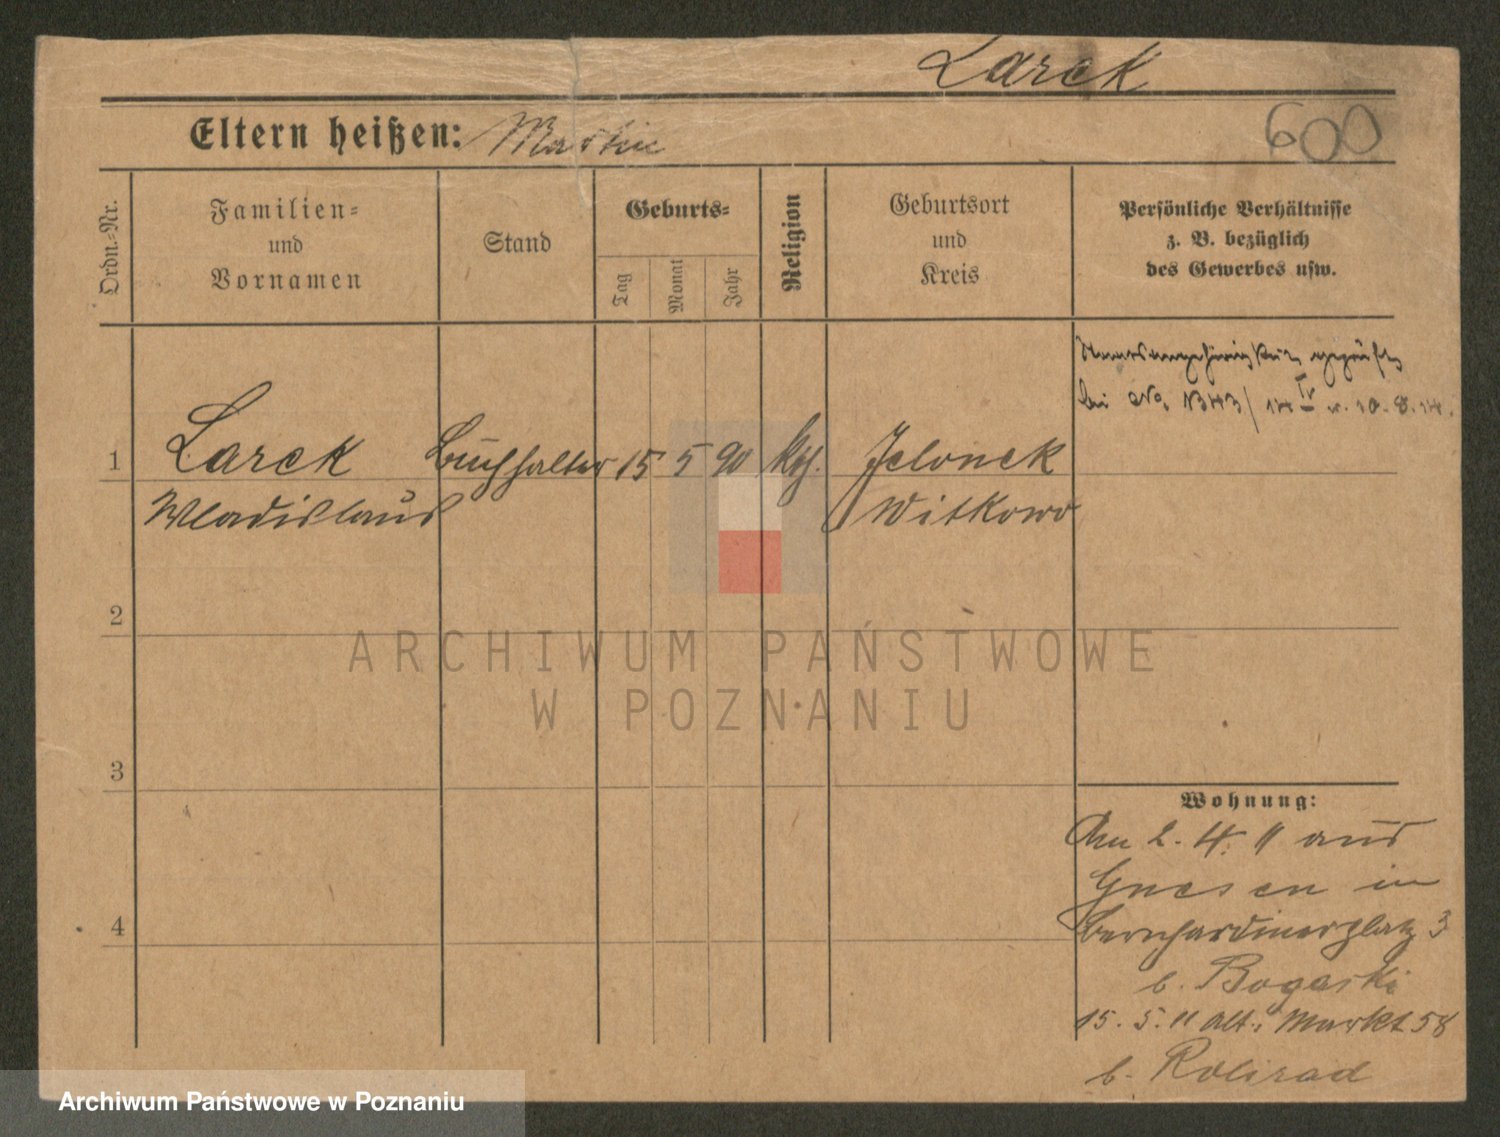 Larck
Eltern heißen: Martin
600
Ordn.-Nr.
Familien-
und
Vornamen
Stand
Geburts-
Tag
Monat
Jahr
Religion
Geburtsort
und
Kreis
Persönliche Verhältnisse
z. B. bezüglich
des Gewerbes usw.
Staatsangehörigkeit geprüft
bei No. 1343/14 IV v. 10.8.14.
1 Larck Buchhalter 15 5 90 kth. Jelonek
Wladislaus Witkowo
2
3
4
Wohnung:
Am 2. 4. 11 aus
Gnesen in
Bernhardinerplatz 3
b. Bogaski
15. 5. 11 Alt. Markt 58
b. Rolirad
ARCHIWUM PAŃSTWOWE
W POZNANIU
Archiwum Państwowe w Poznaniu